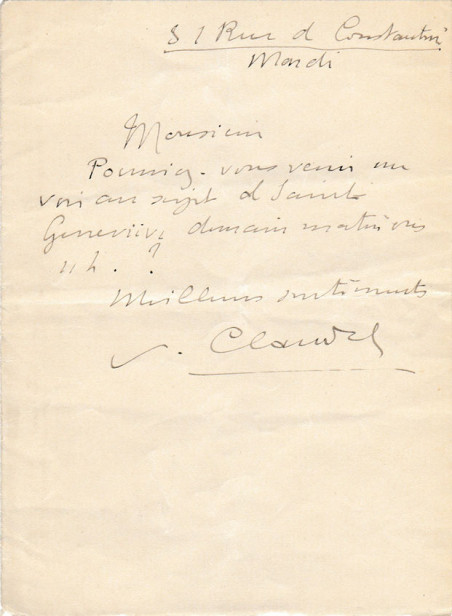 81 Rue d Constantin
Mardi
Monsieur
Pourriez-vous venir me
voir au sujet d Sainte
Geneviève demain matin vers
11 h. ?
Meilleurs sentiments
P. Claudel